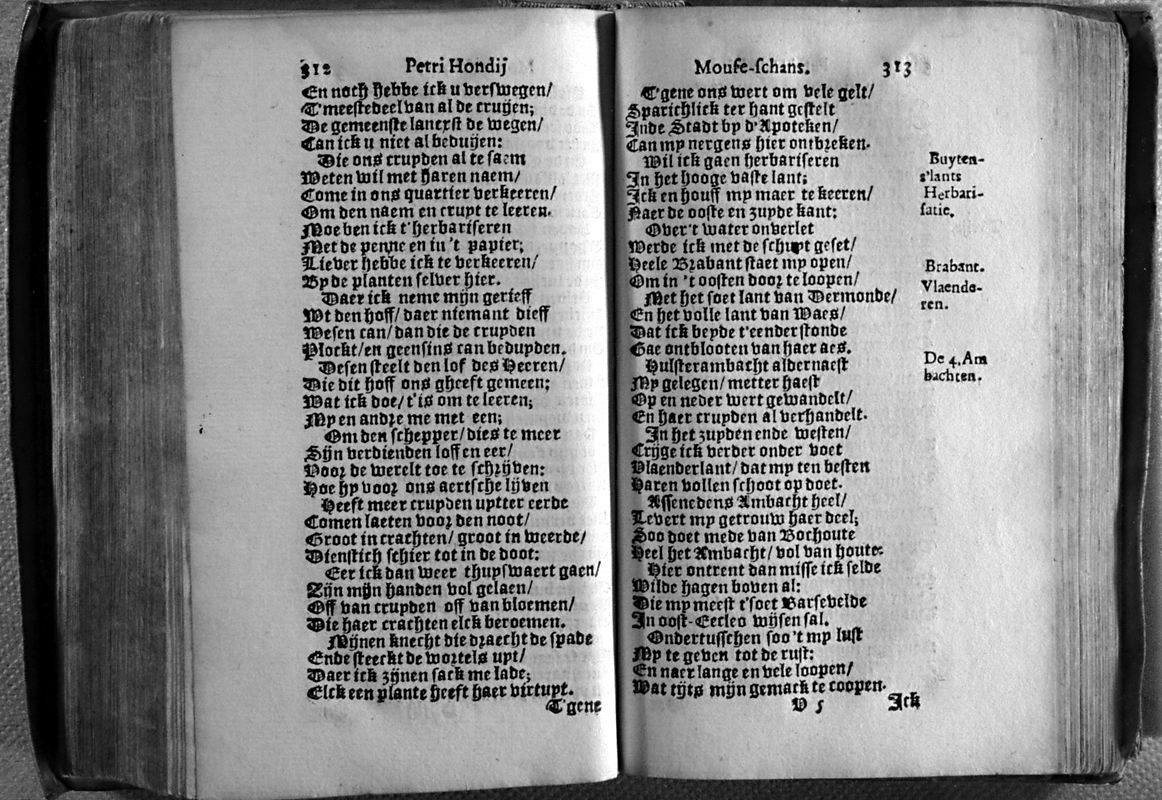 312 Petri Hondij
En noch hebbe ick u verswegen/
T'meestedeel van al de cruijen;
De gemeenste lancxst de wegen/
Can ick u niet al beduijen:
Die ons cruyden al te saem
Weten wil met haren naem/
Come in ons quartier verkeeren/
Om den naem en cruyt te leeren.
Moe ben ick t'herbariseren
Met de penne en in 't papier;
Liever hebbe ick te verkeeren/
By de planten selver hier.
Daer ick neme mijn gerieff
Wt den hoff/ daer niemant dieff
Wesen can/ dan die de cruyden
Plockt/ en geensins can beduyden.
Desen steelt den lof des Heeren/
Die dit hoff ons gheeft gemeen;
Wat ick doe/ t'is om te leeren;
My en andre me met een;
Om den schepper/ dies te meer
Sijn verdienden loff en eer/
Voor de werelt toe te schrijven:
Hoe hy voor ons aertsche lijven
Heeft meer cruyden uytter eerde
Comen laeten voor den noot/
Groot in crachten/ groot in weerde/
Dienstich schier tot in de doot:
Eer ick dan weer thuyswaert gaen/
Zijn mijn handen vol gelaen/
Off van cruyden off van bloemen/
Die haer crachten elck beroemen.
Mijnen knecht die draecht de spade
Ende steeckt de wortels uyt/
Daer ick zijnen sack me lade;
Elck een plante heeft haer virtuyt.
T'gene
Mouse-schans. 313
T'gene ons wert om vele gelt/
Sparichlick ter hant gestelt
Inde Stadt by d'Apoteken/
Can my nergens hier ontbreken.
Wil ick gaen herbariseren
In het hooge vaste lant;
Ick en houff my maer te keeren/
Naer de ooste en zuyde kant:
Over't water onverlet
Werde ick met de schuyt geset/
Heele Brabant staet my open/
Om in 't oosten door te loopen/
Met het soet lant van Dermonde/
En het volle lant van Waes/
Dat ick beyde t'eender stonde
Gae ontblooten van haer aes.
Hulsterambacht aldernaest
My gelegen/ metter haest
Op en neder wert gewandelt/
En haer cruyden al verhandelt.
In het zuyden ende westen/
Crijge ick verder onder voet
Vlaenderlant/ dat my ten besten
Haren vollen schoot op doet.
Assenedens Ambacht heel/
Levert my getrouw haer deel;
Soo doet mede van Bochoute
Heel het Ambacht/ vol van houte:
Hier ontrent dan misse ick selde
Wilde hagen boven al:
Die my meest t'soet Barsevelde
In oost-Eecleo wijsen sal.
Ondertusschen soo't my lust
My te geven tot de rust:
En naer lange en vele loopen/
Wat tijts mijn gemack te coopen.
V 5 Ick
Buyten-
s'lants
Herbari-
satie.
Brabant.
Vlaende-
ren.
De 4. Am
bachten.